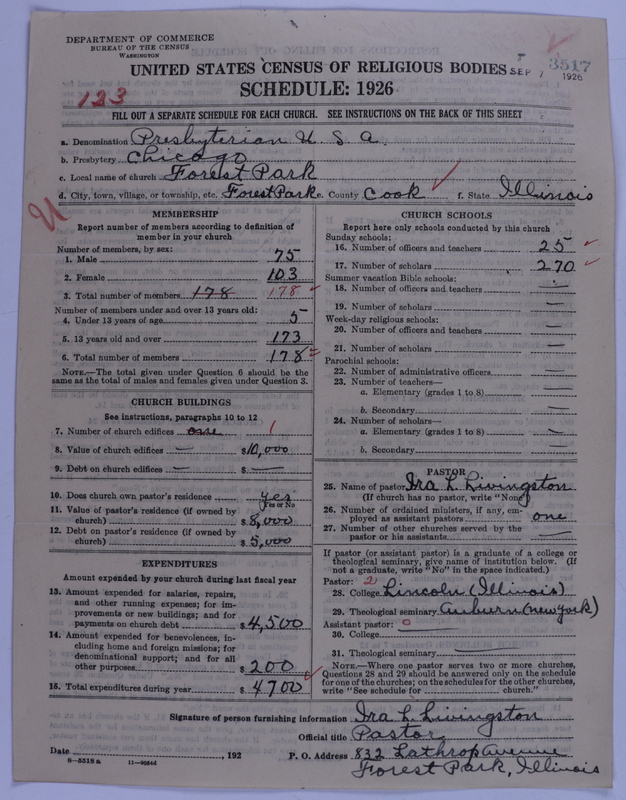 DEPARTMENT OF COMMERCE
BUREAU OF THE CENSUS
WASHINGTON
UNITED STATES CENSUS OF RELIGIOUS BODIES
SEP 1926
3517
SCHEDULE: 1926
123
FILL OUT A SEPARATE SCHEDULE FOR EACH CHURCH. SEE INSTRUCTIONS ON THE BACK OF THIS SHEET
a. Denomination Presbyterian U S A.
b. Presbytery Chicago
c. Local name of church Forest Park
d. City, town, village, or township, etc. Forest Park e. County Cook f. State Illinois
MEMBERSHIP
Report number of members according to definition of
member in your church
Number of members, by sex:
1. Male 75
2. Female 103
3. Total number of members 178 178
Number of members under and over 13 years old:
4. Under 13 years of age 5
5. 13 years old and over 173
6. Total number of members 178
NOTE.—The total given under Question 6 should be
same as the total of males and females given under Question 3.
CHURCH BUILDINGS
See instructions, paragraphs 10 to 12
7. Number of church edifices one 1
8. Value of church edifices — $10,000
9. Debt on church edifices — $ —
10. Does church own pastor's residence yes
Yes or No
11. Value of pastor's residence (if owned by
church) $ 8,000
12. Debt on pastor's residence (if owned by
church) $ 5,000
EXPENDITURES
Amount expended by your church during last fiscal year
13. Amount expended for salaries, repairs,
and other running expenses; for im-
provements or new buildings; and for
payments on church debt $ 4,500
14. Amount expended for benevolences, in-
cluding home and foreign missions; for
denominational support; and for all
other purposes $ 200
15. Total expenditures during year $ 4700
CHURCH SCHOOLS
Report here only schools conducted by this church
Sunday schools:
16. Number of officers and teachers 25
17. Number of scholars 270
Summer vacation Bible schools:
18. Number of officers and teachers —
19. Number of scholars —
Week-day religious schools:
20. Number of officers and teachers —
21. Number of scholars —
Parochial schools:
22. Number of administrative officers —
23. Number of teachers—
a. Elementary (grades 1 to 8) —
b. Secondary —
24. Number of scholars—
a. Elementary (grades 1 to 8) —
b. Secondary —
PASTOR
25. Name of pastor Ira L. Livingston
(If church has no pastor, write "None")
26. Number of ordained ministers, if any, em-
ployed as assistant pastors one
27. Number of other churches served by the
pastor or his assistants —
If pastor (or assistant pastor) is a graduate of a college or
theological seminary, give name of institution below. (If
not a graduate, write "No" in the space indicated.)
Pastor: 2
28. College Lincoln (Illinois)
29. Theological seminary Auburn (New York)
Assistant pastor: 0
30. College —
31. Theological seminary —
NOTE.—Where one pastor serves two or more churches,
Questions 28 and 29 should be answered only on the schedule
for one of the churches; on the schedules for the other churches,
write "See schedule for church."
Signature of person furnishing information Ira L. Livingston
Official title Pastor
Date , 192 P. O. Address 832 Lathrop Avenue
8—5518 a
Forest Park, Illinois